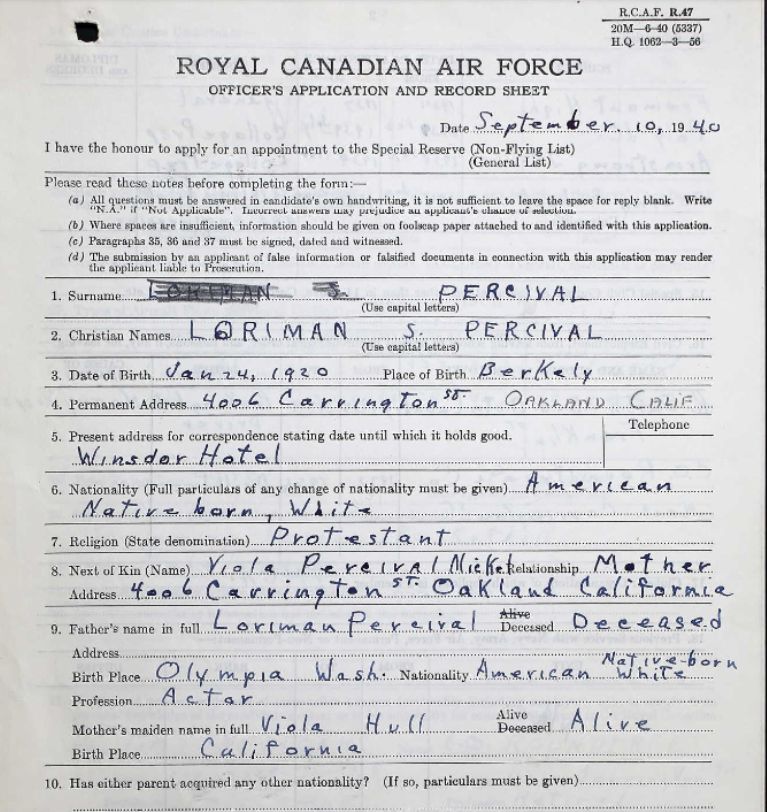 R.C.A.F. R.47
20M—6-40 (5337)
H.Q. 1062—3—56
ROYAL CANADIAN AIR FORCE
OFFICER'S APPLICATION AND RECORD SHEET
Date September 10, 1940
I have the honour to apply for an appointment to the Special Reserve (Non-Flying List)
(General List)
Please read these notes before completing the form:—
(a) All questions must be answered in candidate's own handwriting, it is not sufficient to leave the space for reply blank. Write
"N.A." if "Not Applicable". Incorrect answers may prejudice an applicant's chance of selection.
(b) Where spaces are insufficient, information should be given on foolscap paper attached to and identified with this application.
(c) Paragraphs 35, 36 and 37 must be signed, dated and witnessed.
(d) The submission by an applicant of false information or falsified documents in connection with this application may render
the applicant liable to Prosecution.
1. Surname LORIMAN S. PERCIVAL
(Use capital letters)
2. Christian Names LORIMAN S. PERCIVAL
(Use capital letters)
3. Date of Birth Jan 24, 1920 Place of Birth Berkely
4. Permanent Address 4006 Carrington ST. OAKLAND CALIF
5. Present address for correspondence stating date until which it holds good. Telephone
Winsdor Hotel
6. Nationality (Full particulars of any change of nationality must be given) American
Native born, White
7. Religion (State denomination) Protestant
8. Next of Kin (Name) Viola Percival Nickel Relationship Mother
Address 4006 Carrington ST. Oakland California
9. Father's name in full Loriman Percival Alive Deceased Deceased
Address
Birth Place Olympia Wash. Nationality American Native-born White
Profession Actor
Mother's maiden name in full Viola Hull Alive Deceased Alive
Birth Place California
10. Has either parent acquired any other nationality? (If so, particulars must be given)